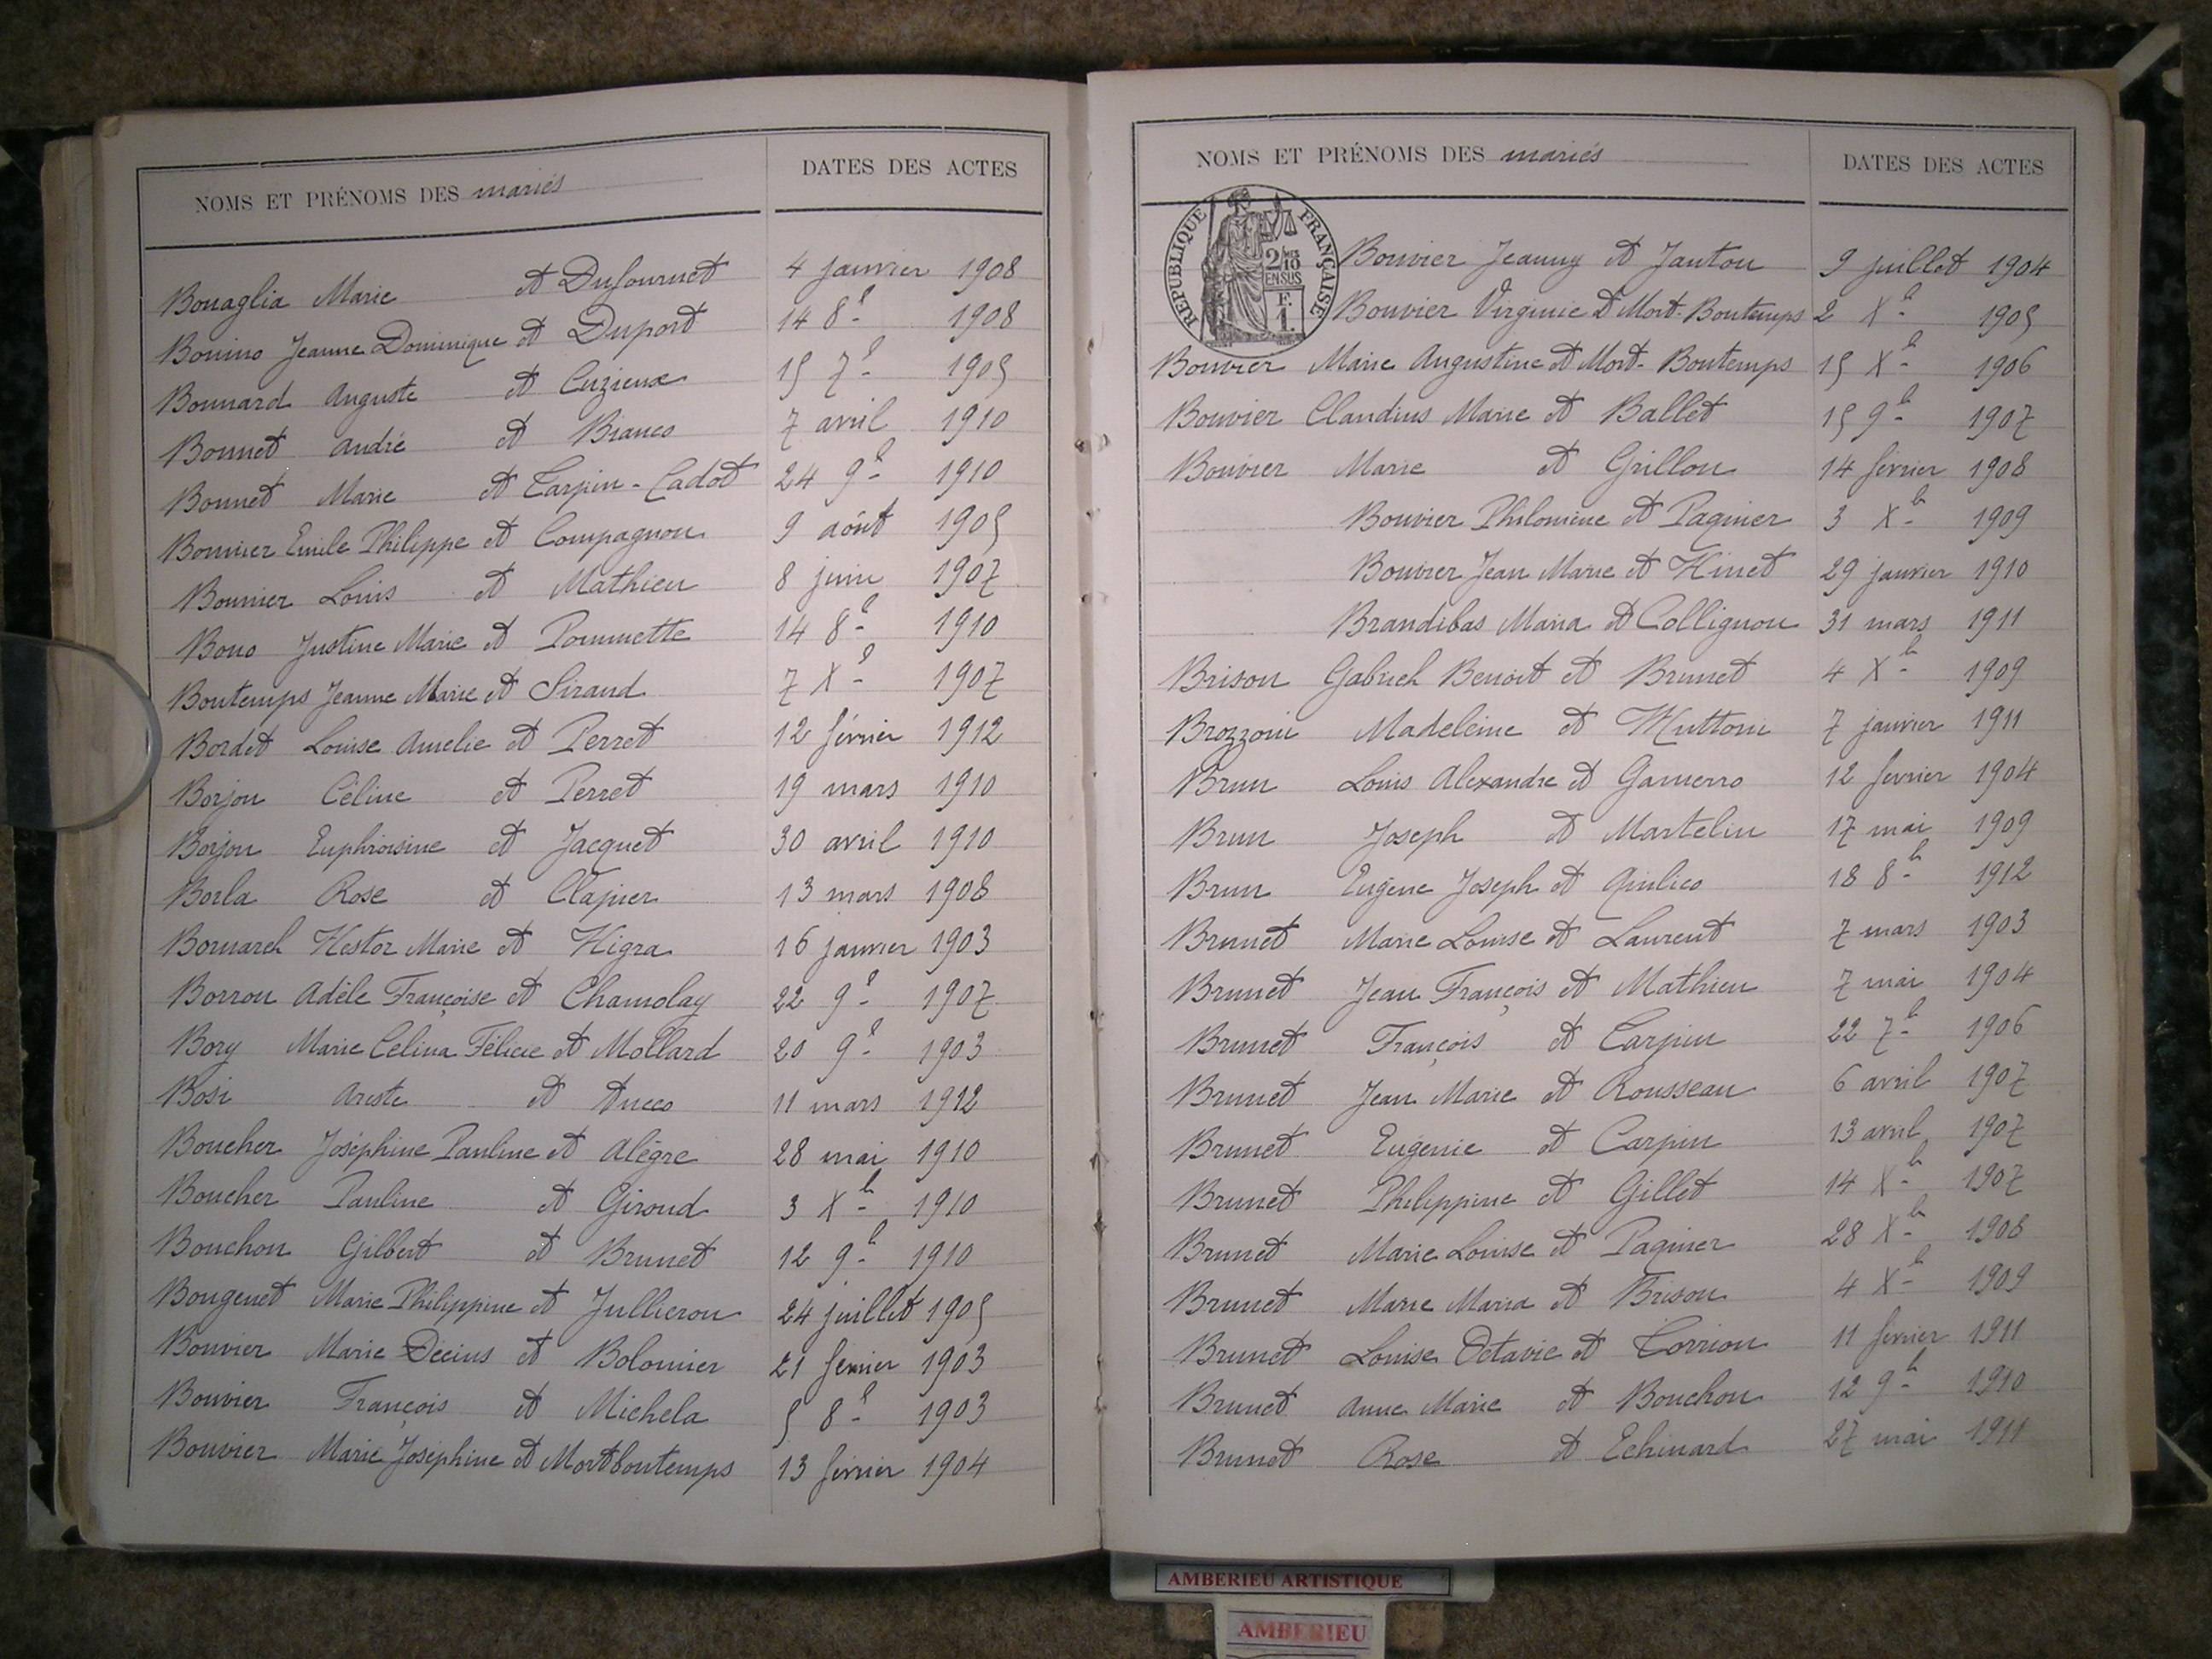 NOMS ET PRÉNOMS DES mariés DATES DES ACTES
Bonaglia Marie et Dufournet 4 janvier 1908
Bonino Jeanne Dominique et Duport 14 8e 1908
Bonnard Auguste et Cuzieux 15 7e 1905
Bonnet André et Bianco 7 avril 1910
Bonnet Marie et Carpin-Cadot 24 9e 1910
Bonnier Emile Philippe et Compagnon 9 août 1905
Bonnier Louis et Mathieu 8 juin 1907
Bono Justine Marie et Pommette 14 8e 1910
Bontemps Jeanne Marie et Siraud 7 Xe 1907
Bordet Louise Amelie et Perret 12 février 1912
Borjon Céline et Perret 19 mars 1910
Borjon Euphroisine et Jacquet 30 avril 1910
Borla Rose et Clapier 13 mars 1908
Bornarel Nestor Marie et Nigra 16 janvier 1903
Borron Adèle Françoise et Chamolay 22 9e 1907
Bory Marie Celina Félicie et Mollard 20 9e 1903
Bosi Oreste et Ducco 11 mars 1912
Boucher Joséphine Pauline et Alègre 28 mai 1910
Boucher Pauline et Giroud 3 Xb 1910
Bouchon Gilbert et Brunet 12 9b 1910
Bougenet Marie Philippine et Jullieron 24 juillet 1905
Bouvier Marie Décius et Bolomier 21 février 1903
Bouvier François et Michela 5 8e 1903
Bouvier Marie Joséphine et Mortbontemps 13 février 1904
NOMS ET PRÉNOMS DES mariés DATES DES ACTES
REPUBLIQUE FRANÇAISE
2/10 EN SUS
F. 1.
Bouvier Jeanny et Janton 9 juillet 1904
Bouvier Virginie et Mort-Bontemps 2 Xb 1905
Bouvier Marie Augustine et Mort-Bontemps 15 Xb 1906
Bouvier Claudius Marie et Ballet 15 9b 1907
Bouvier Marie et Grillon 14 février 1908
Bouvier Philomène et Paginer 3 Xb 1909
Bouvier Jean Marie et Hinet 29 janvier 1910
Brandibas Maria et Collignon 31 mars 1911
Brison Gabriel Benoit et Brunet 4 Xb 1909
Brozzoni Madeleine et Muttoni 7 janvier 1911
Brun Louis Alexandre et Gamerro 12 fevrier 1904
Brun Joseph et Martelin 17 mai 1909
Brun Eugène Joseph et Giulico 18 8b 1912
Brunet Marie Louise et Laurent 7 mars 1903
Brunet Jean François et Mathieu 7 mai 1904
Brunet François et Carpin 22 7b 1906
Brunet Jean Marie et Rousseau 6 avril 1907
Brunet Eugénie et Carpin 13 avril 1907
Brunet Philippine et Gillet 14 Xb 1907
Brunet Marie Louise et Paginer 28 Xb 1908
Brunet Marie Maria et Brison 4 Xb 1909
Brunet Louise Octavie et Corrion 11 février 1911
Brunet Anne Marie et Bouchon 12 9b 1910
Brunet Rose et Echinard 27 mai 1911
AMBERIEU ARTISTIQUE
AMBERIEU